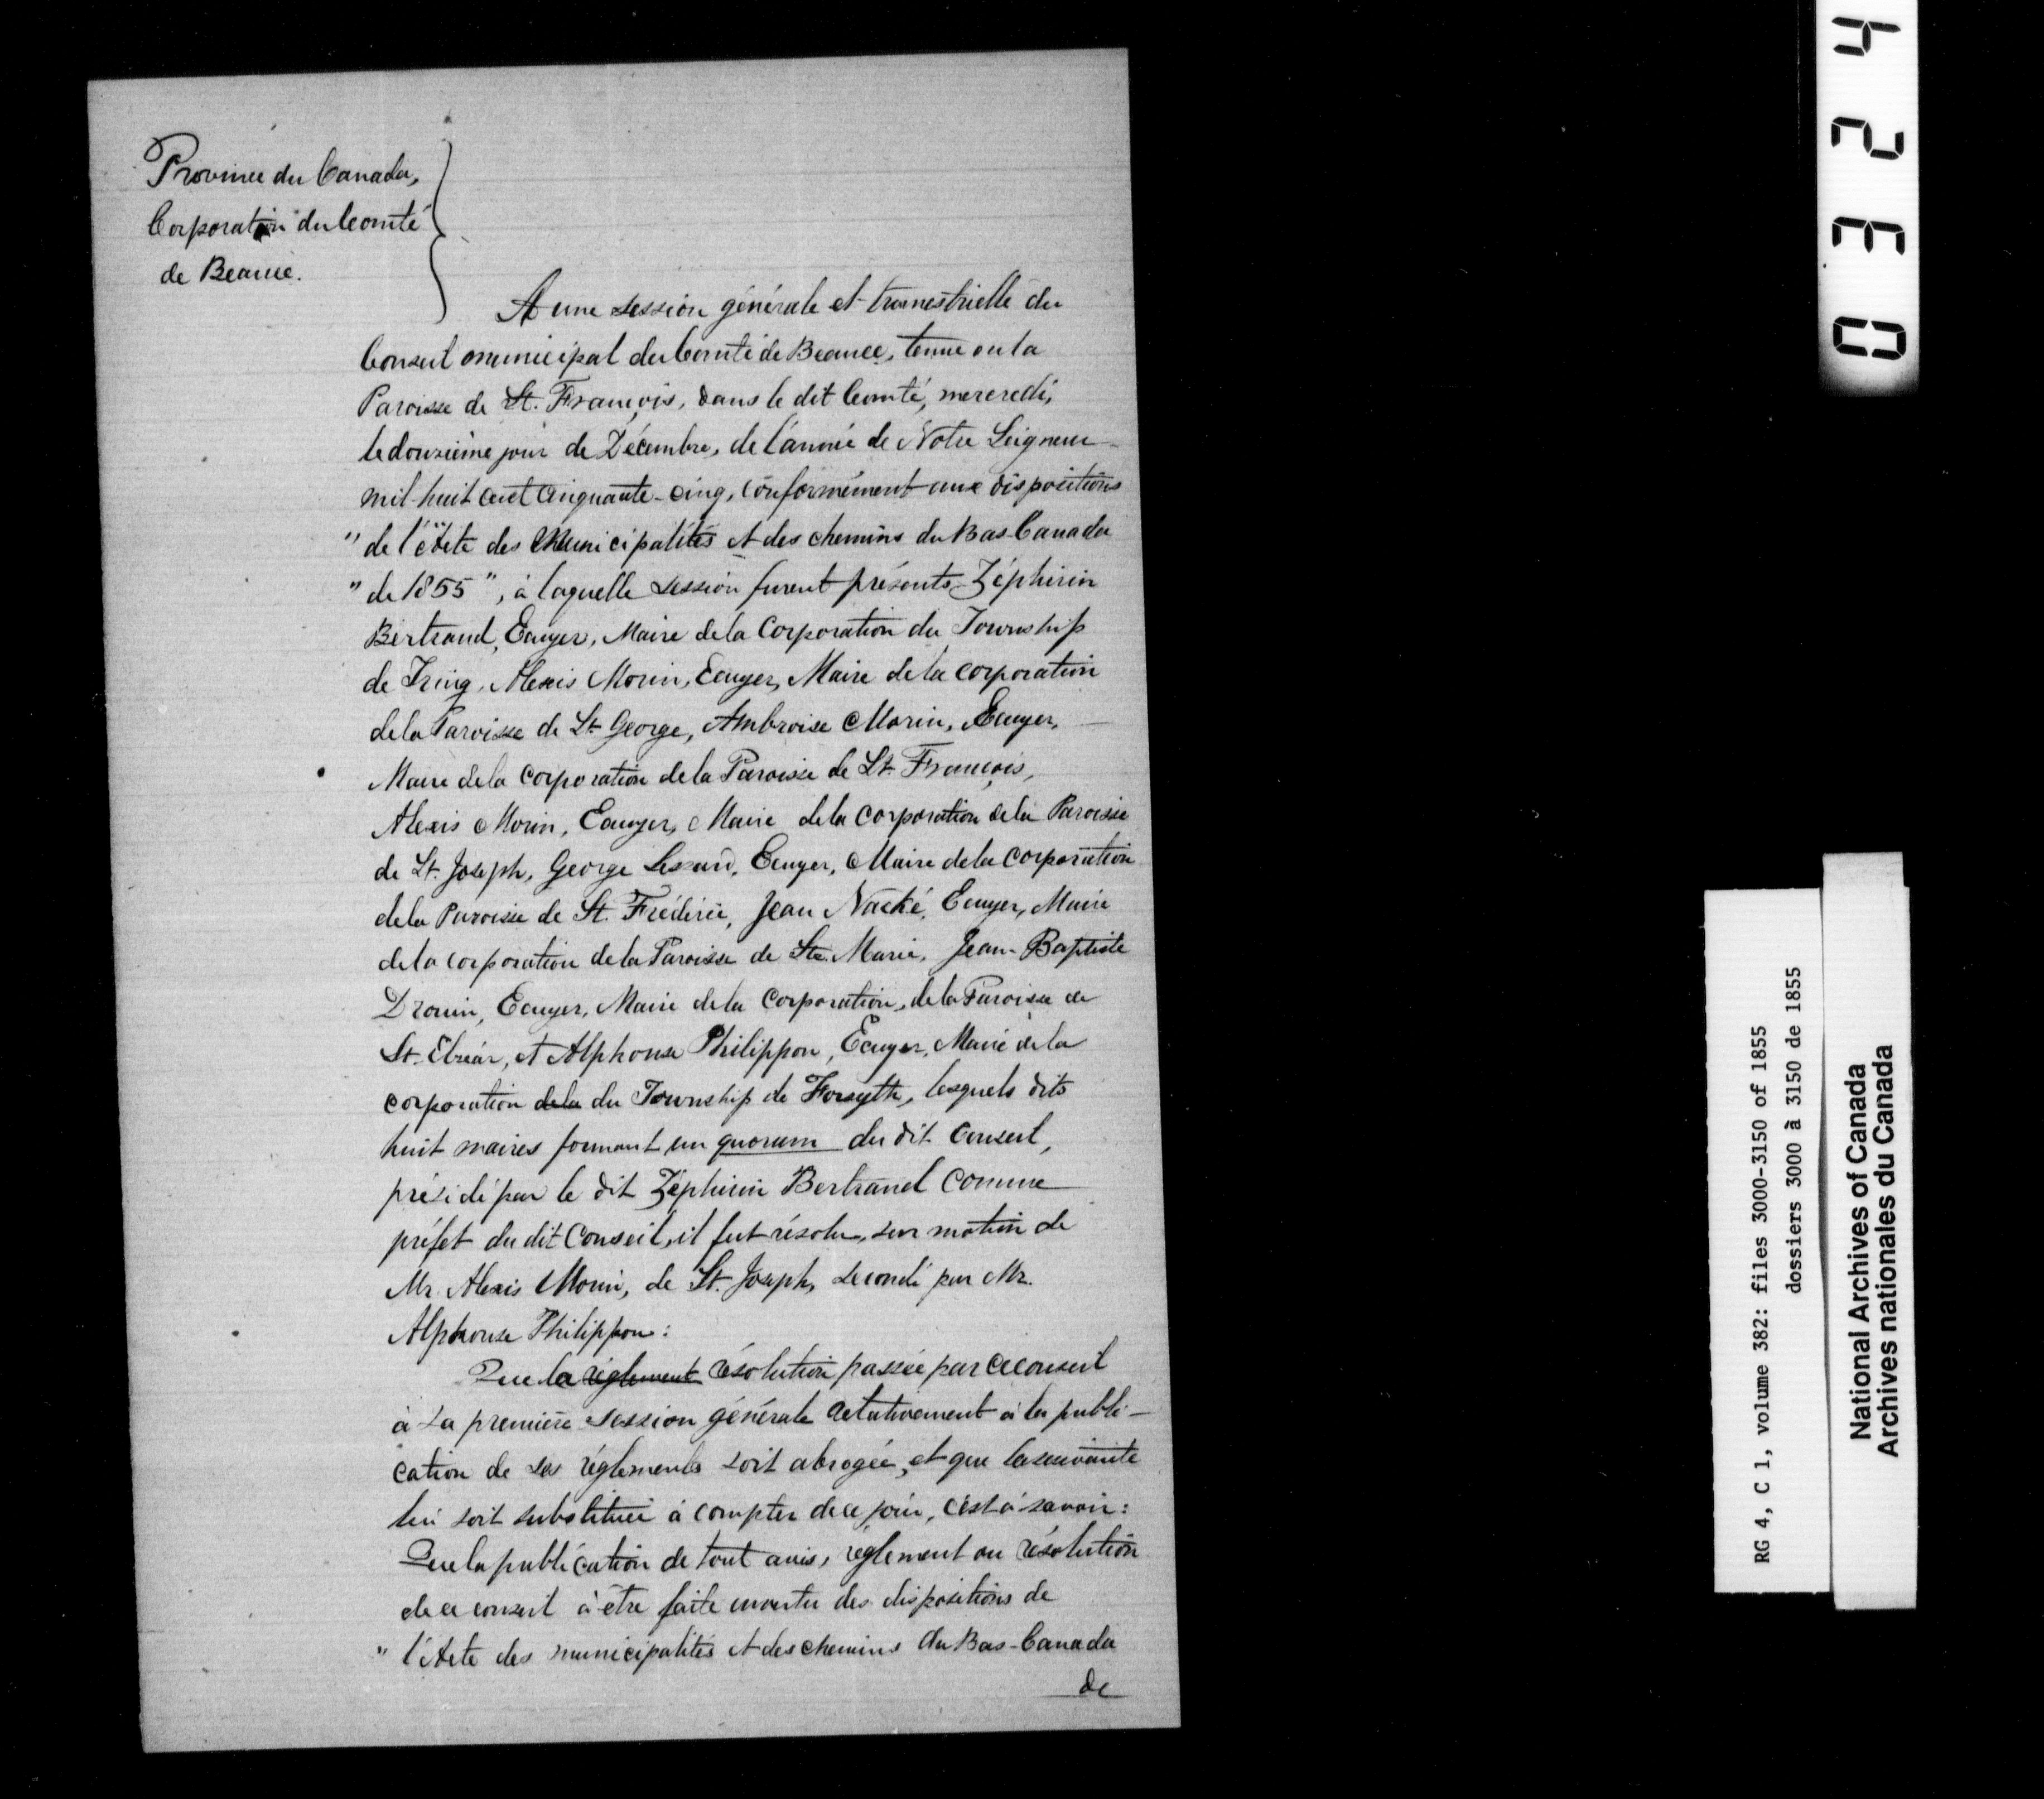 Province du Canada,
Corporation du Comté
de Beauce.
A une session générale et trimestrielle du
Conseil municipal du Comté de Beauce, tenue en la
Paroisse de St. François, dans le dit Comté, mercredi,
le douzième jour de Décembre, de l'année de Notre Seigneur
mil-huit cent cinquante-cinq, conformément aux dispositions
" de l'Acte des Municipalités et des chemins du Bas-Canada
" de 1855", à laquelle session furent présents Zéphirin
Bertrand, Ecuyer, Maire de la Corporation du Township
de Tring, Alexis Morin, Ecuyer, Maire de la corporation
de la Paroisse de St. George, Ambroise Morin, Ecuyer,
Maire de la corporation de la Paroisse de St. François,
Alexis Morin, Ecuyer, Maire de la corporation de la Paroisse
de St. Joseph, George Lessard, Ecuyer, Maire de la corporation
de la Paroisse de St. Fréderic, Jean Nacké, Ecuyer, Maire
de la corporation de la Paroisse de Ste. Marie, Jean-Baptiste
Drouin, Ecuyer, Maire de la Corporation, de la Paroisse de
St. Elzéar, et Alphonse Philippon, Ecuyer, Maire de la
corporation de la du Township de Forsyth, lesquels dits
huit maires formant un quorum du dit Conseil,
présidé par le dit Zéphirin Bertrand comme
préfet du dit Conseil, il fut résolu, sur motion de
Mr. Alexis Morin, de St. Joseph, secondé par Mr.
Alphonse Philippon:
Que la réglement résolution passée par ce conseil
à sa première session générale relativement à la publi-
cation de ses réglements soit abrogée, et que la suivante
lui soit substituée à compter de ce jour, c'est à savoir:
Que la publication de tout avis, réglement ou résolution
de ce conseil à être faite en vertu des dispositions de
" l'Acte des municipalités et des chemins du Bas-Canada
de
0324
RG 4, C 1, volume 382: files 3000-3150 of 1855
dossiers 3000 à 3150 de 1855
National Archives of Canada
Archives nationales du Canada